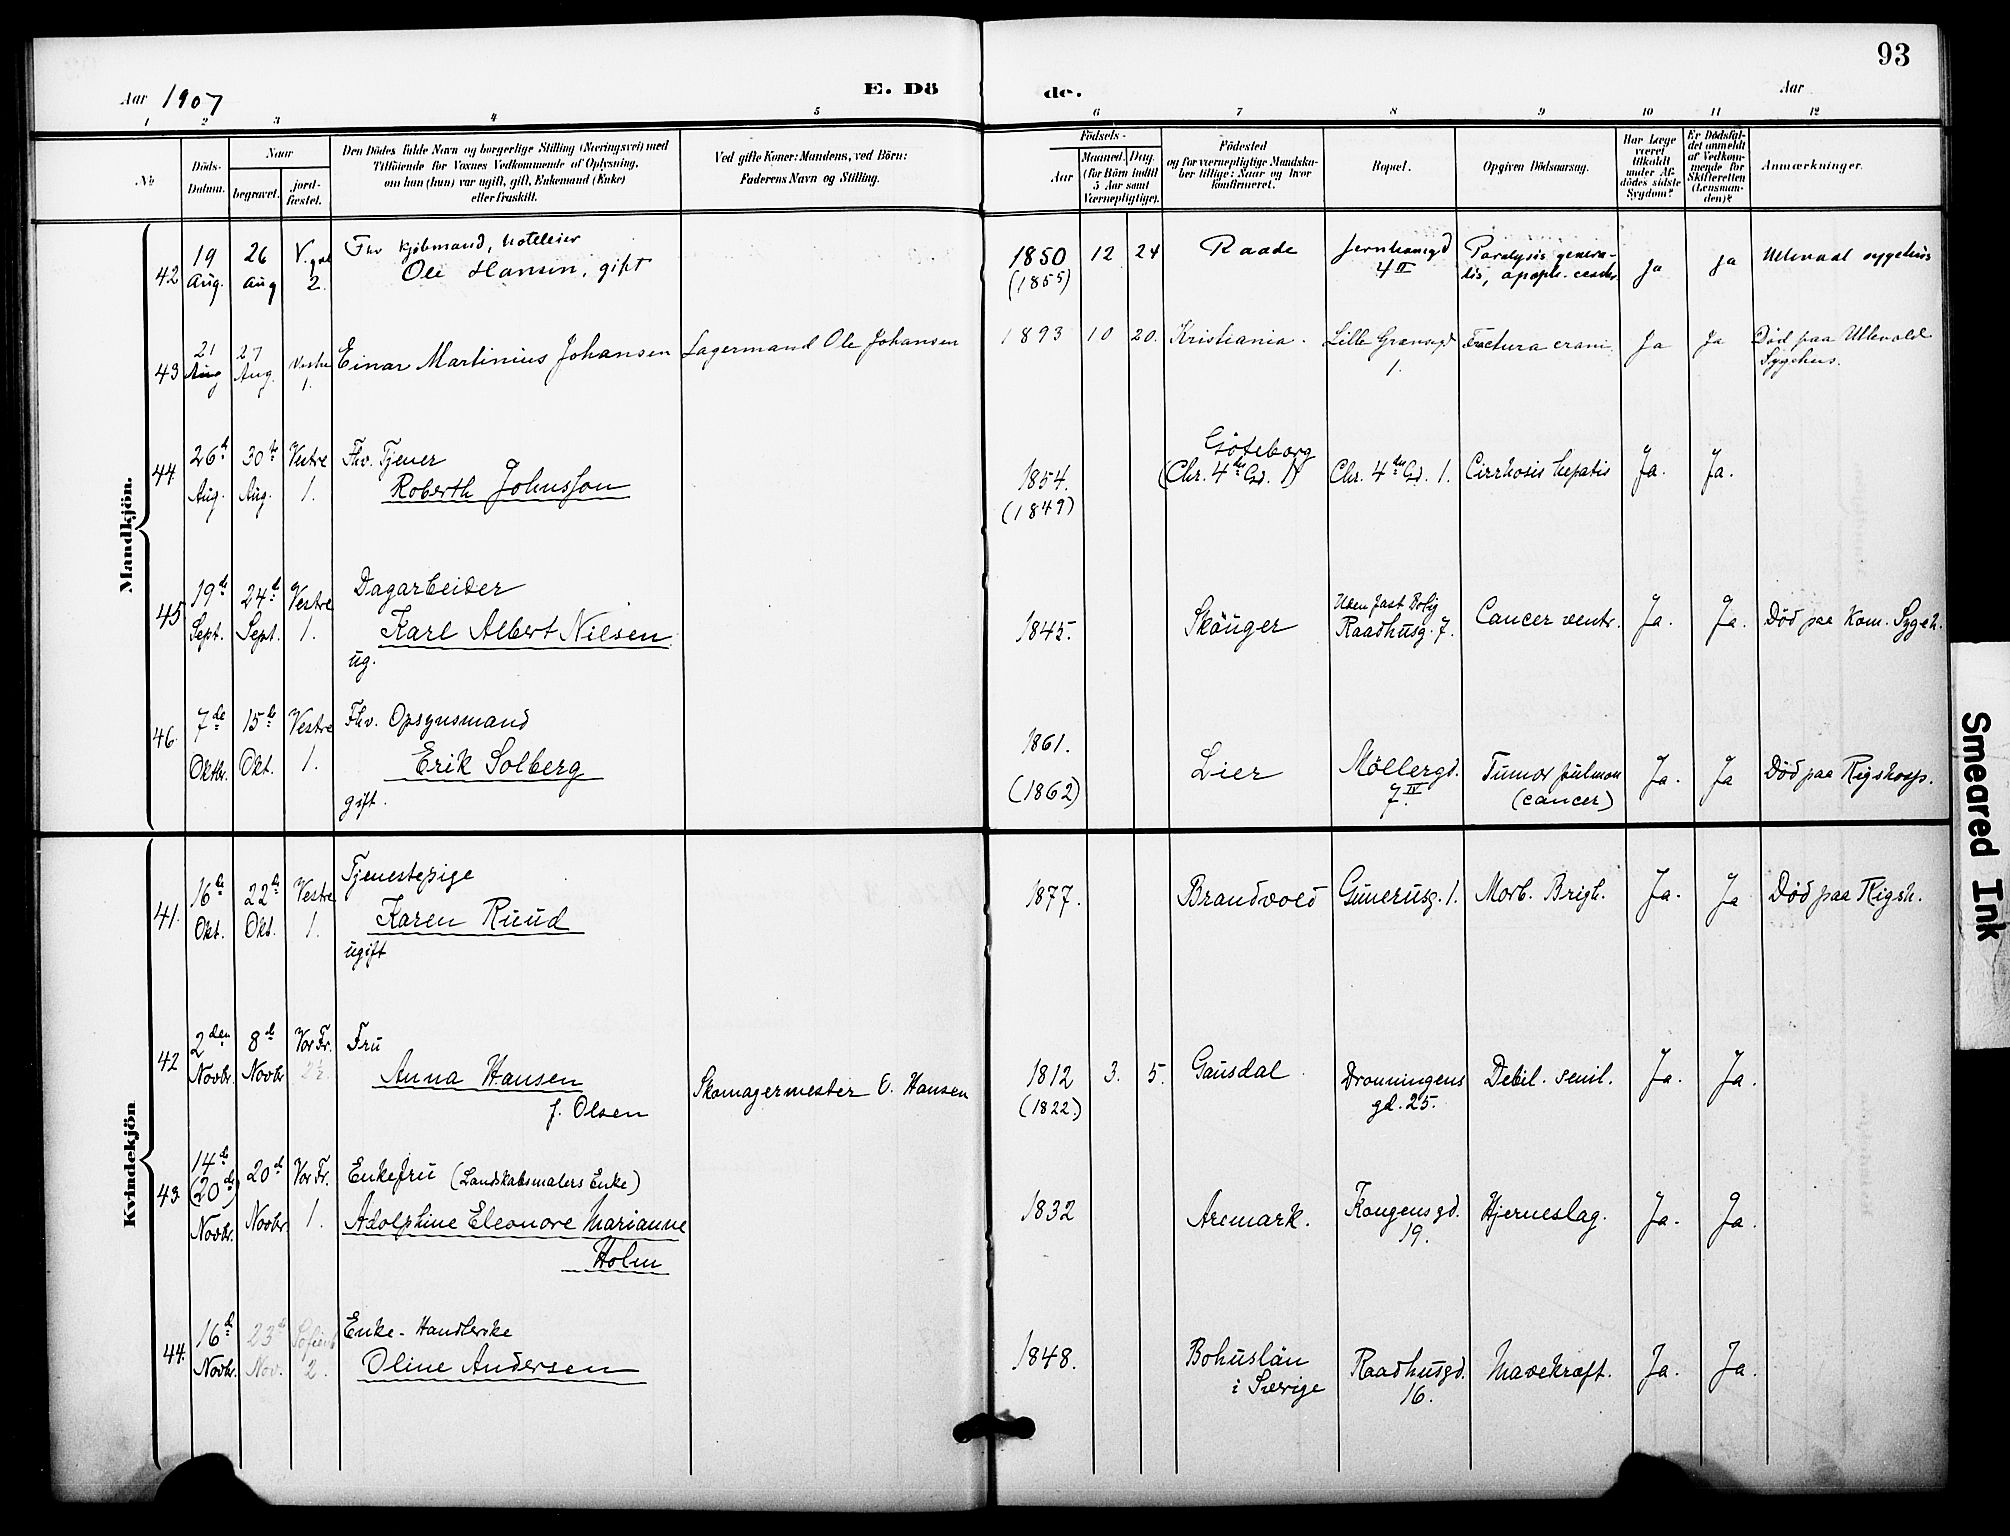 93
Aar 1907
E. Dö
de.
Aar
1 2 3 4 5 6 7 8 9 10 11 12
№
Döds-
Datum.
Naar
begravet.
jord-
fæstet.
Den Dödes fulde Navn og borgerlige Stilling (Næringsvei) med
Tilföiende for Voxnes Vedkommende af Oplysning,
om han (hun) var ugift, gift, Enkemand (Enke)
eller fraskilt.
Ved gifte Koner: Mandens, ved Börn:
Faderens Navn og Stilling.
Födsels-
Aar
Maaned. Dag.
(for Börn indtil
5 Aar samt
Værnepligtige).
Födested
og for værnepligtige Mandska-
ber tillige: Naar og hvor
konfirmeret.
Bopæl.
Opgiven Dödsaarsag.
Har Læge
været
tilkaldt
under Af-
dödes sidste
Sygdom?
Er Dödsfal-
det anmeldt
af Vedkom-
mende for
Skifteretten
(Lensman-
den)?
Anmærkninger.
Mandkjön.
42 19 Aug. 26 Aug V. gml 2.
Fhv kjøbmand, hoteleier
Ole Hansen, gift
1850 12 24
(1855)
Raade
Jernbanegd
4 II
Paralysis genera-
lis, apopl. cerebr.
Ja
Ja
Ullevaal sygehus
43 21 Aug 27 Aug. Vestre 1.
Einar Martinius Johansen
Lagermand Ole Johansen
1893 10 20.
Kristiania.
Lille Grænsegd
1.
Fractura crani
Ja
Ja
Død paa Ullevold
Sygehus.
44 26de Aug. 30te Aug. Vestre 1.
Fhv. Tjener
Roberth Johnsson
1854.
(1849)
Göteborg
(Chr. 4des Gd. 1)
Chr. 4des Gd. 1.
Cirrhosis hepatis
Ja.
Ja.
45 19de Sept. 24de Sept. Vestre 1.
Dagarbeider
Karl Albert Nilsen
ug.
1845.
Skåuger
Uden fast Bolig
Raadhusg. 7.
Cancer ventr.
Ja.
Ja.
Død paa Kom. Sygeh.
46. 7de Oktbr. 15de Okt. Vestre 1.
Fhv. Opsynsmand
Erik Solberg
gift.
1861.
(1862)
Lier
Möllergd.
7. IV
Tumor pulmon
(cancer)
Ja.
Ja
Død paa Rigshosp.
Kvindekjön
41. 16de Okt. 22de Okt. Vestre 1.
Tjenestepige
Karen Ruud
ugift
1877.
Brandvold
Gunerusg. 1.
Morb. Brigh.
Ja.
Ja
Død paa Rigsh.
42 2den Novbr. 8de Novbr Vor Fr. 2½.
Fru
Anna Hansen
f. Olsen
Skomagermester E. Hansen
1812 3. 5.
(1822.)
Gausdal.
Dronningens
gd. 25.
Debil. senil.
Ja.
Ja.
43. 14de (20de) Novbr. 20de Novbr Vor Fr. 1.
Enkefru (Landskabsmalers Enke)
Adolphine Eleonore Marianne
Holm
1832
Aremark.
Kongensgd.
19.
Hjerneslag.
Ja.
Ja.
44. 16de Novbr. 23de Nov. Sofienb 2.
Enke - Handlerske
Oline Andersen
1848.
Bohuslän
i Sverige
Raadhusgd.
16.
Mavekræft.
Ja.
Ja.
Smeared Ink